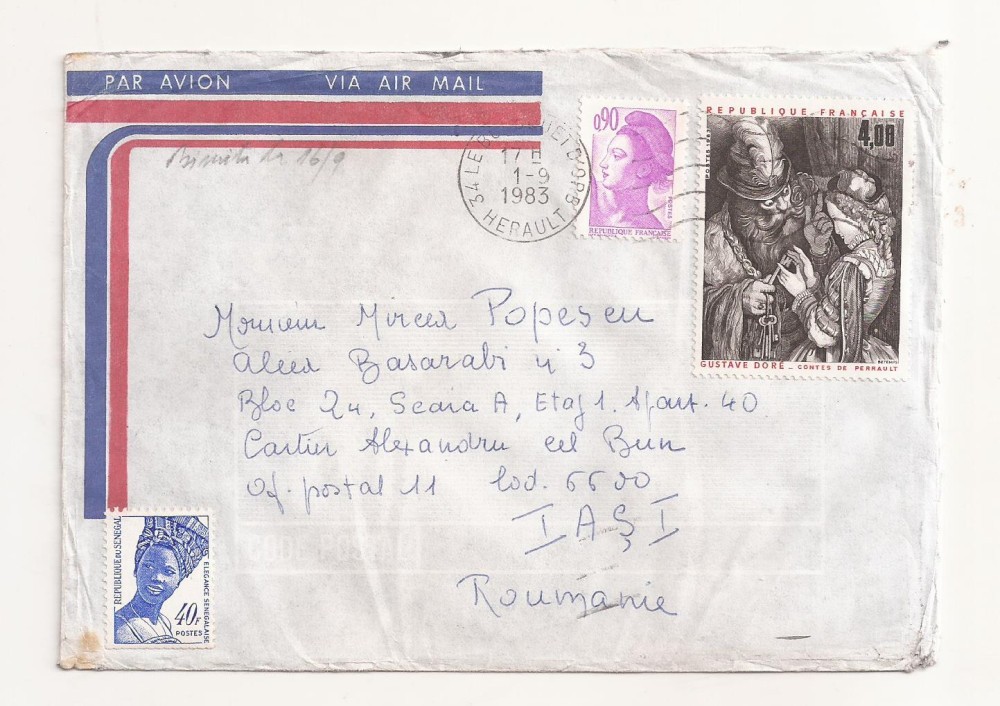 PAR AVION VIA AIR MAIL
17 H
1-9
1983
HERAULT
0,90
POSTES
REPUBLIQUE FRANÇAISE
REPUBLIQUE FRANÇAISE
4,00
POSTES 1983
GUSTAVE DORÉ _ CONTES DE PERRAULT
16/9
Monsieur Mircea Popescu
Aleea Basarabi n 3
Bloc 24, Scara A, Etaj 1. Apart. 40
Cartier Alexandru cel Bun
Of. postal 11 Cod. 6600
IAŞI
Roumanie
REPUBLIQUE DU SENEGAL
ELEGANCE SENEGALAISE
40F
POSTES